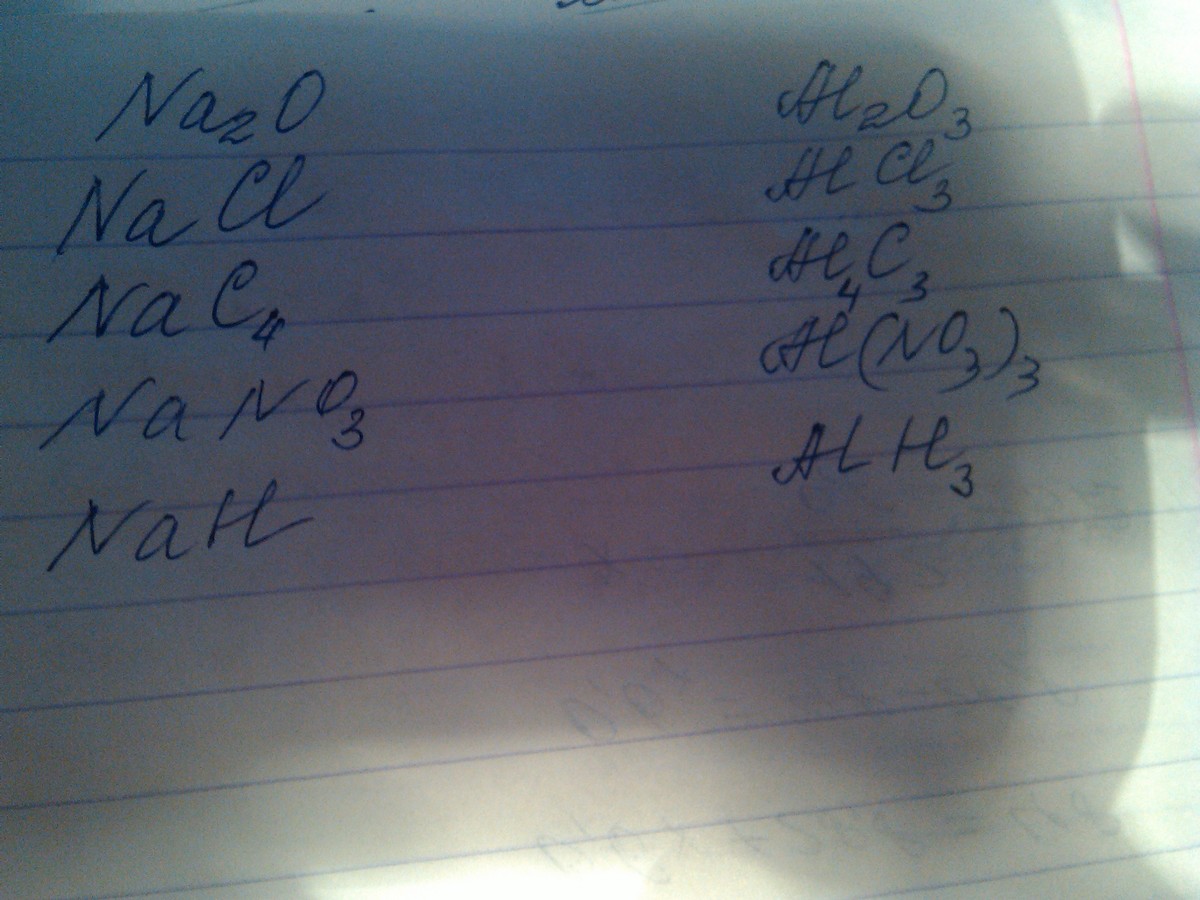 Na₂O
NaCl
NaC₄
NaNO₃
NaH
Al₂O₃
AlCl₃
Al₄C₃
Al(NO₃)₃
AlH₃